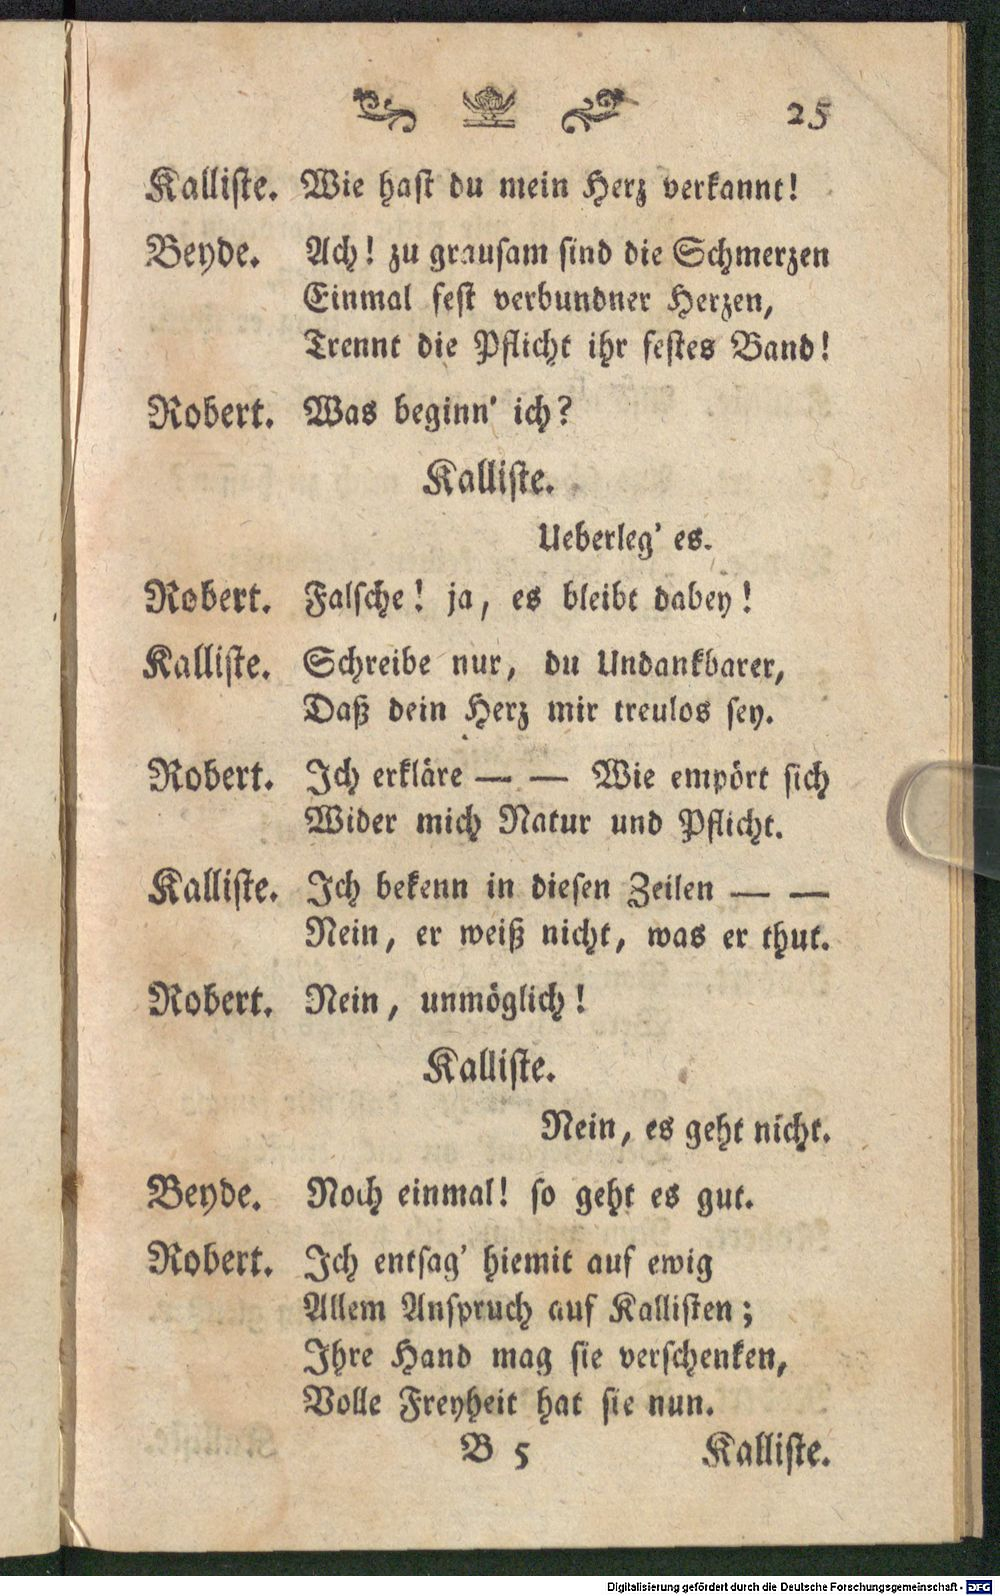 25
Kalliste. Wie hast du mein Herz verkannt!
Beyde. Ach! zu grausam sind die Schmerzen
Einmal fest verbundner Herzen,
Trennt die Pflicht ihr festes Band!
Robert. Was beginn' ich?
Kalliste.
Ueberleg' es.
Robert. Falsche! ja, es bleibt dabey!
Kalliste. Schreibe nur, du Undankbarer,
Daß dein Herz mir treulos sey.
Robert. Ich erkläre — — Wie empört sich
Wider mich Natur und Pflicht.
Kalliste. Ich bekenn in diesen Zeilen — —
Nein, er weiß nicht, was er thut.
Robert. Nein, unmöglich!
Kalliste.
Nein, es geht nicht.
Beyde. Noch einmal! so geht es gut.
Robert. Ich entsag' hiemit auf ewig
Allem Anspruch auf Kallisten;
Ihre Hand mag sie verschenken,
Volle Freyheit hat sie nun.
B 5 Kalliste.
Digitalisierung gefördert durch die Deutsche Forschungsgemeinschaft - DFG